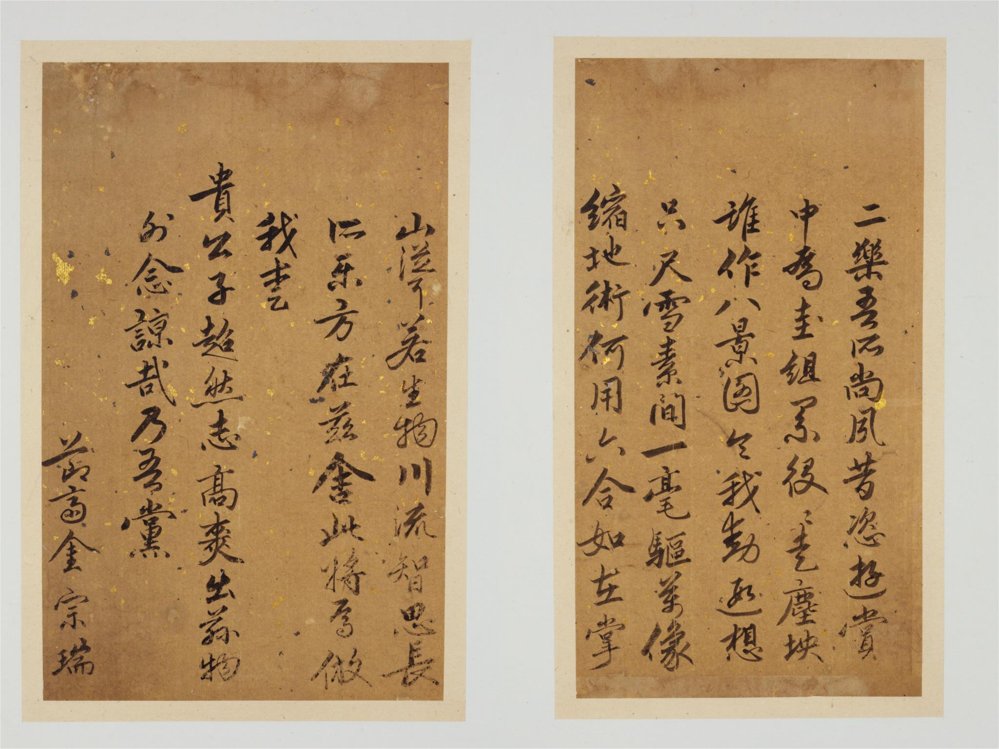 二樂吾所尚夙昔恣遊賞
中爲圭組累役〻走塵坱
誰作八景圖令我動遐想
只尺雪素間一毫驅萬像
縮地術何用六合如在掌
山 若生物川流智思長
所樂方在茲舍此將焉倣
我
貴公子超然志高爽出茲物
外念諒哉乃吾黨
節齋金宗瑞